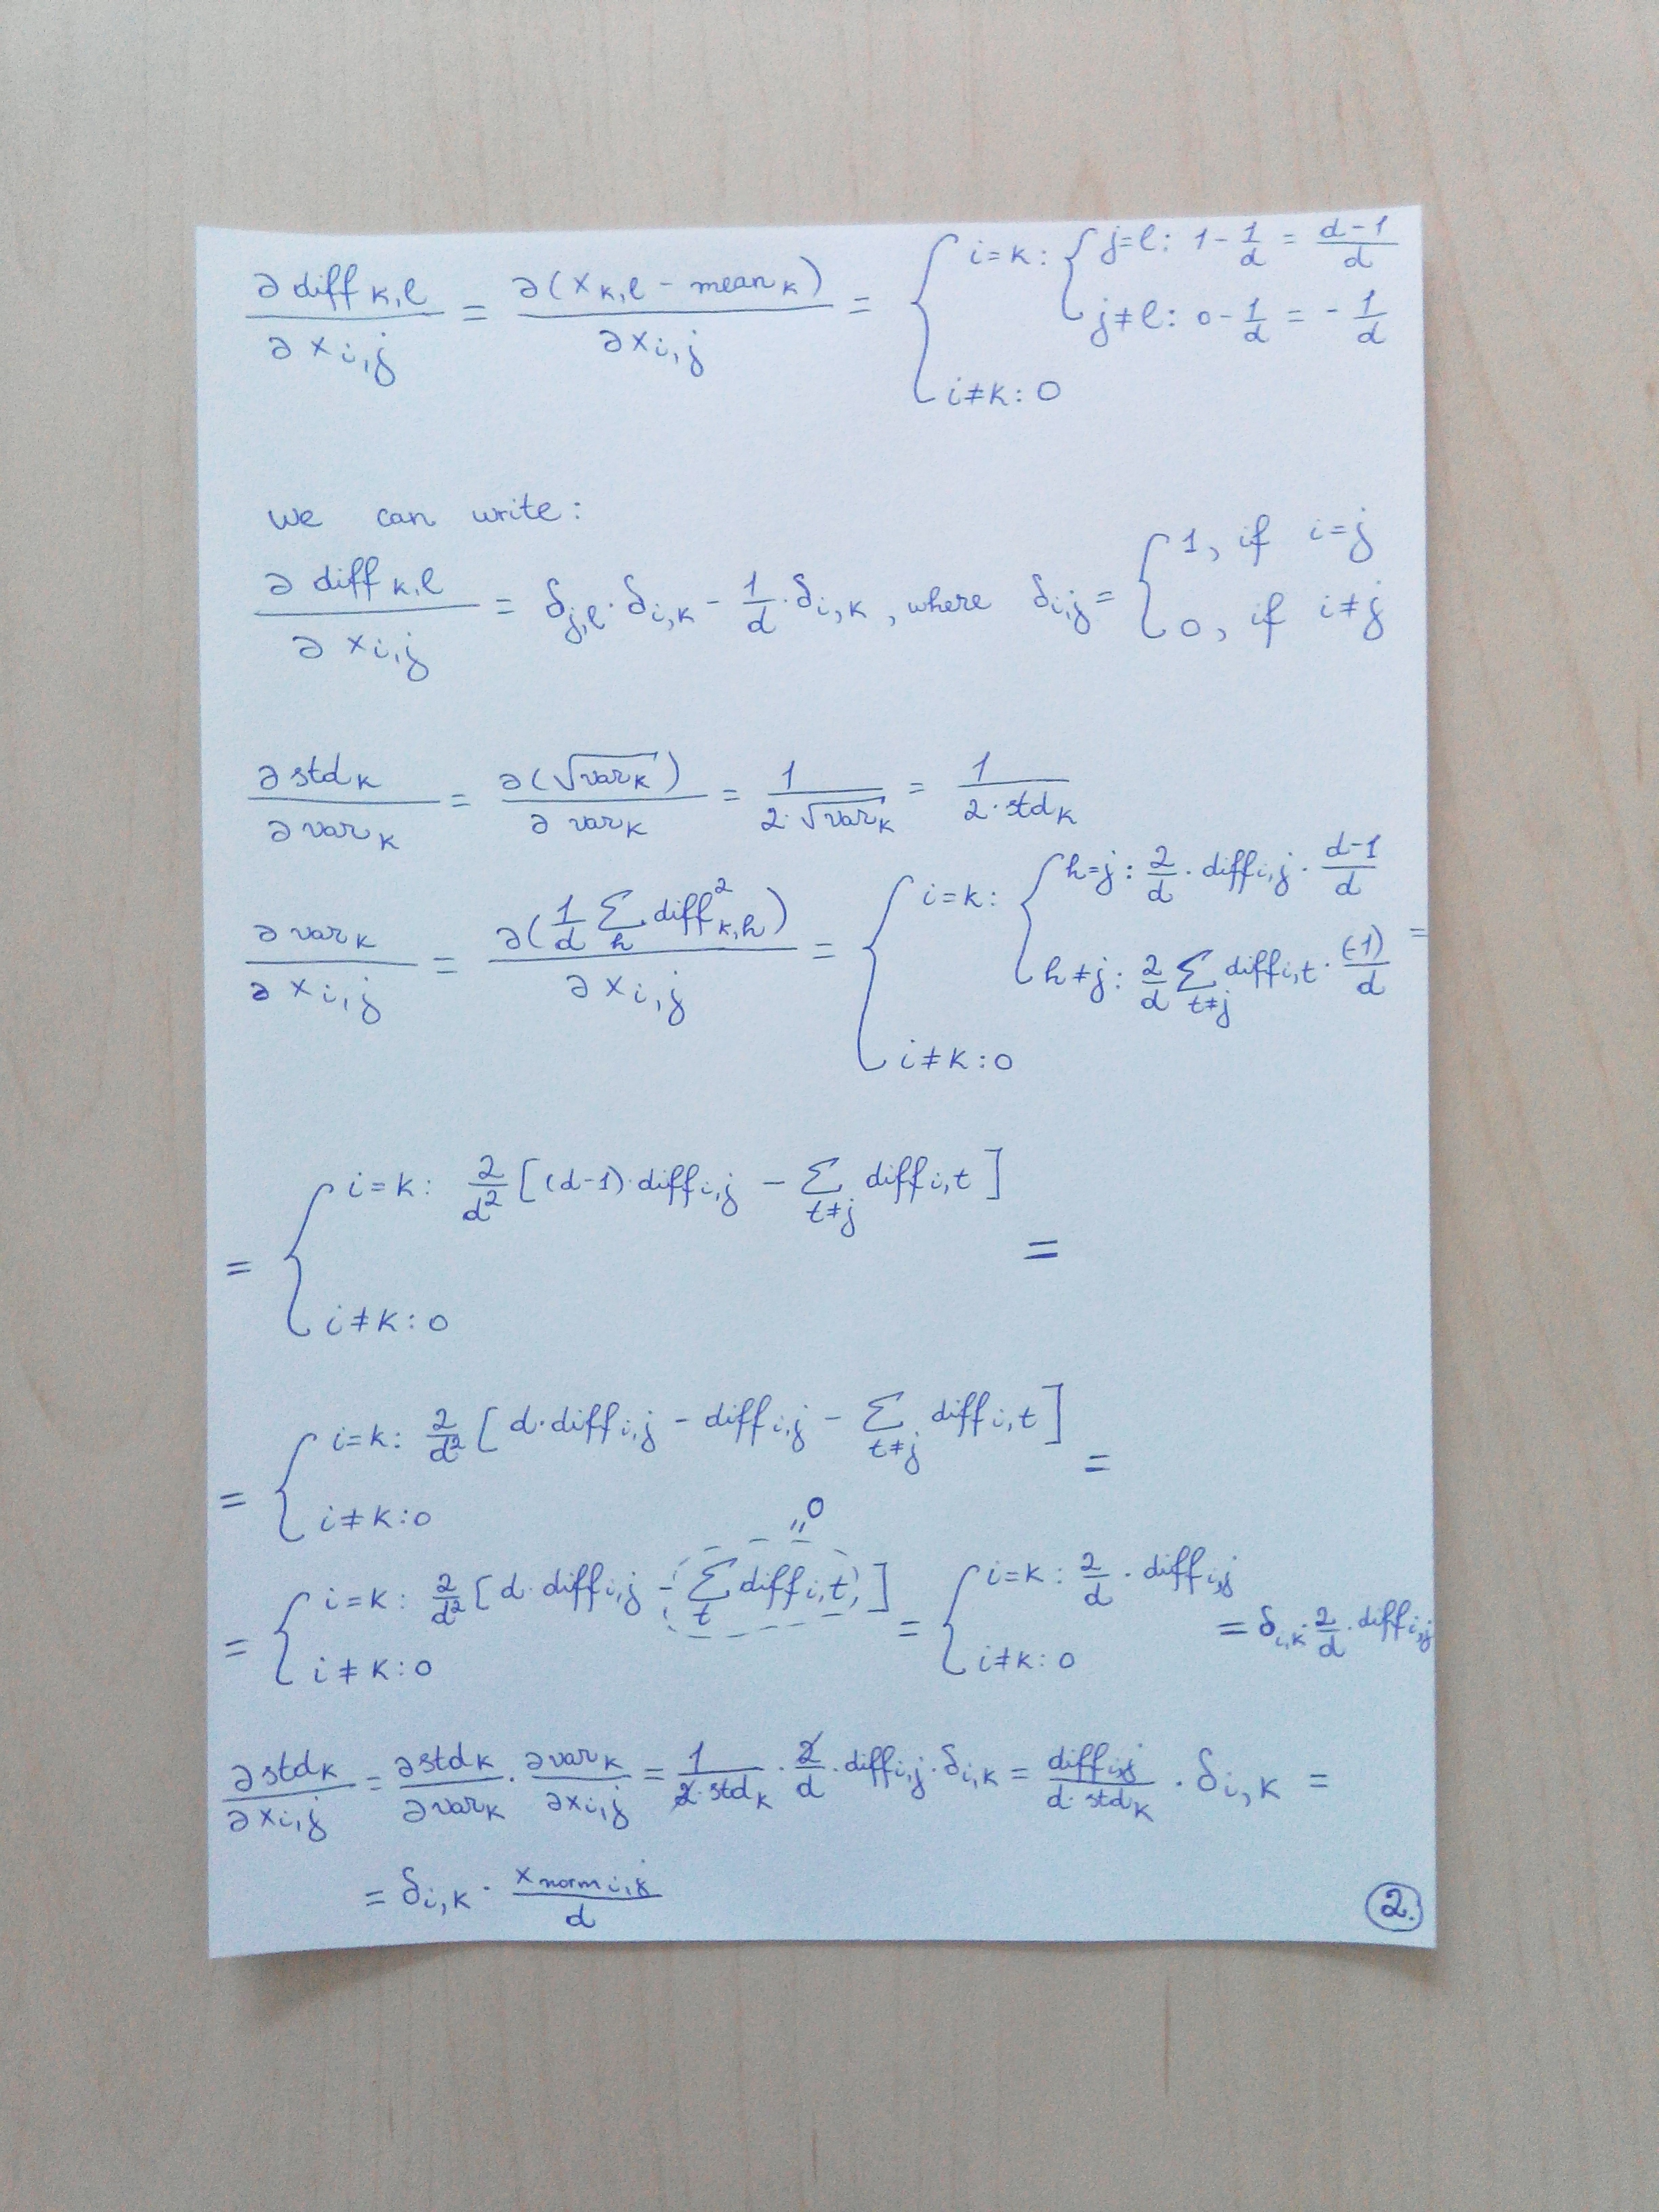 ∂ diff_{k,l} / ∂ x_{i,j} = ∂(x_{k,l} - mean_k) / ∂x_{i,j} = { i=k: { j=l: 1 - 1/d = (d-1)/d ; j≠l: 0 - 1/d = - 1/d ; i≠k: 0
we can write:
∂ diff_{k,l} / ∂ x_{i,j} = δ_{j,l} · δ_{i,k} - 1/d · δ_{i,k} , where δ_{i,j} = { 1, if i=j ; 0, if i≠j
∂ std_k / ∂ var_k = ∂(√var_k) / ∂ var_k = 1 / (2·√var_k) = 1 / (2·std_k)
∂ var_k / ∂ x_{i,j} = ∂(1/d Σ_h diff²_{k,h}) / ∂ x_{i,j} = { i=k: { h=j: 2/d · diff_{i,j} · (d-1)/d ; h≠j: 2/d Σ_{t≠j} diff_{i,t} · (-1)/d ; i≠k: 0 =
= { i=k: 2/d² [(d-1)·diff_{i,j} - Σ_{t≠j} diff_{i,t}] ; i≠k: 0 =
= { i=k: 2/d² [d·diff_{i,j} - diff_{i,j} - Σ_{t≠j} diff_{i,t}] ; i≠k: 0 =
= { i=k: 2/d² [d·diff_{i,j} - Σ_t diff_{i,t}] (= 0) ; i≠k: 0 = { i=k: 2/d · diff_{i,j} ; i≠k: 0 = δ_{i,k} · 2/d · diff_{i,j}
∂std_k / ∂x_{i,j} = ∂std_k / ∂var_k · ∂var_k / ∂x_{i,j} = 1 / (2·std_k) · 2/d · diff_{i,j} · δ_{i,k} = diff_{i,j} / (d·std_k) · δ_{i,k} =
= δ_{i,k} · x_{norm i,j} / d
2.